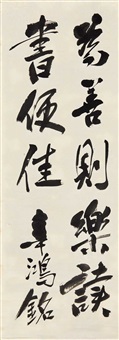 為善則樂讀
書便佳
辜鴻銘